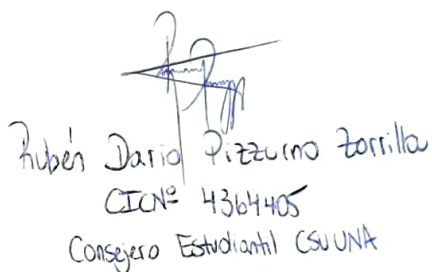 Rubén Dario Pizzurno Zorrilla
CICNº 4364405
Consejero Estudiantil CSUUNA